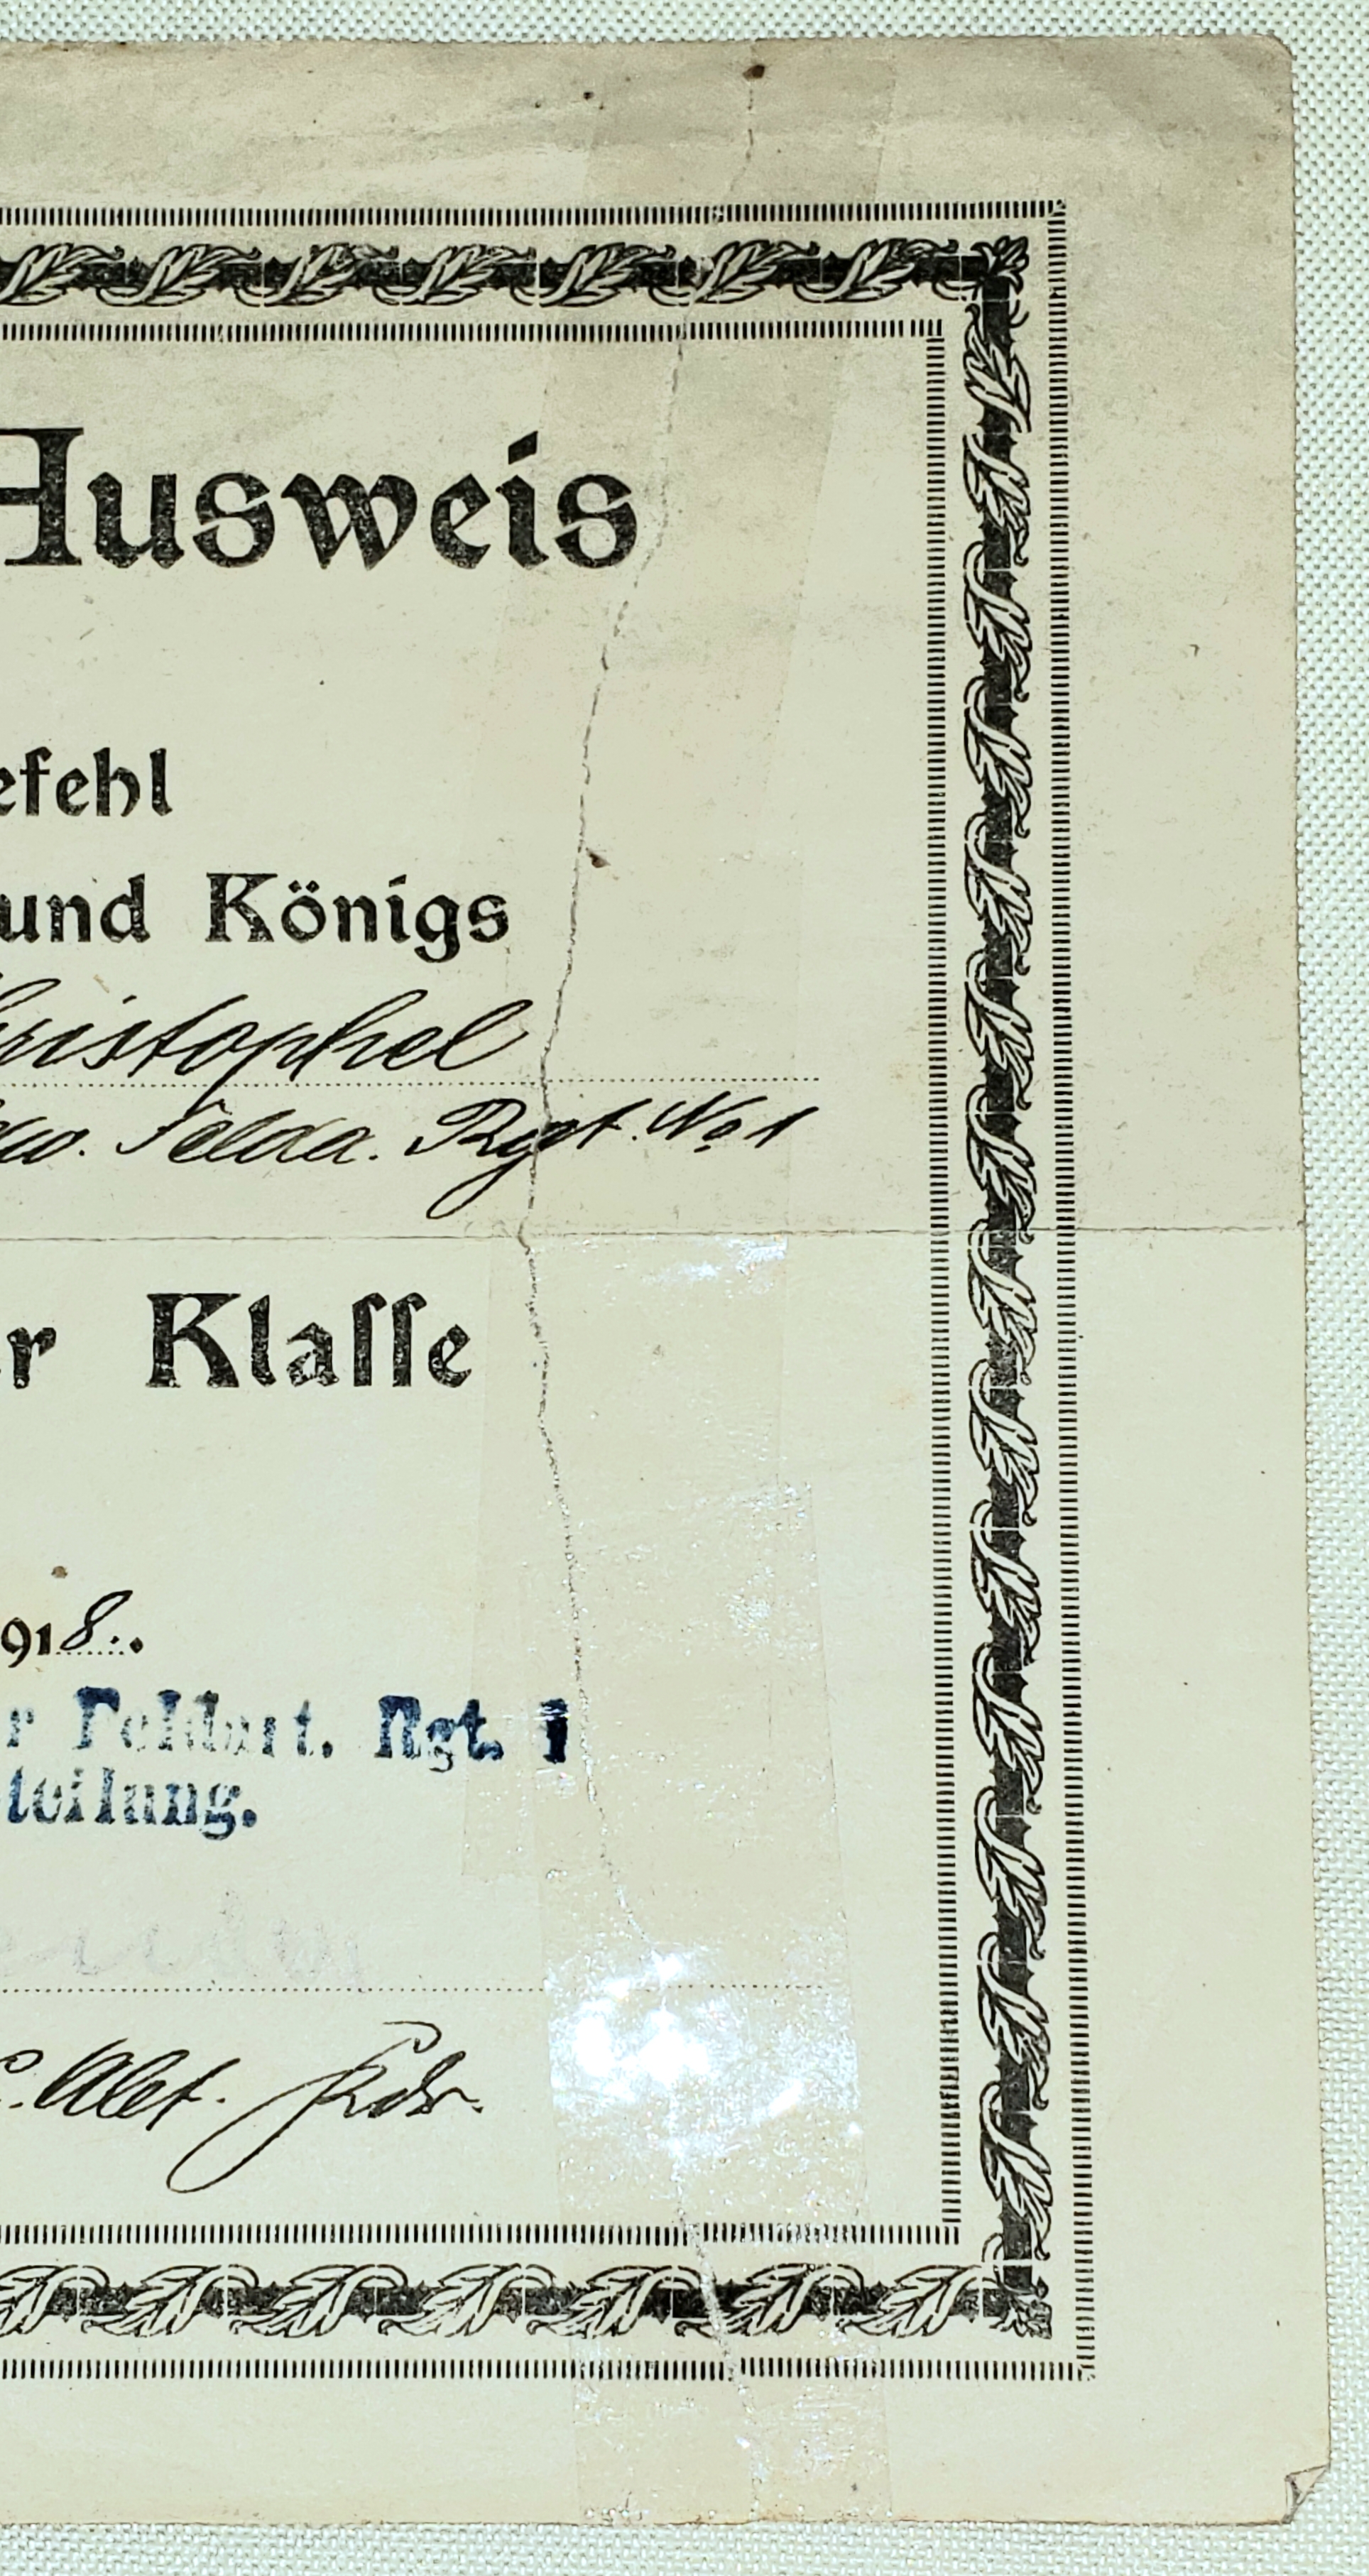 Ausweis
efehl
und Königs
hristophel
Felda. Rgt. No 1
er Klaſſe
918..
r Feldart. Rgt. 1
teilung.
Abt. Kdr.